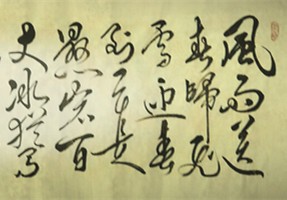 風雨送
春歸飛
雪迎春
到已是
懸崖百
丈冰猶有